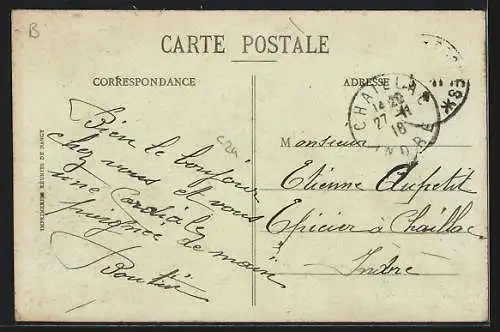 B
CARTE POSTALE
CORRESPONDANCE
ADRESSE
CHAILLAC
14 22
27 - 11
16
INDRE
Bien le bonjour
chez vous et vous
une Cordiale
poignée de main
Monsieur
Etienne Aupetit
Epicier à Chaillac
Indre
IMPRIMERIES RÉUNIES DE NANCY